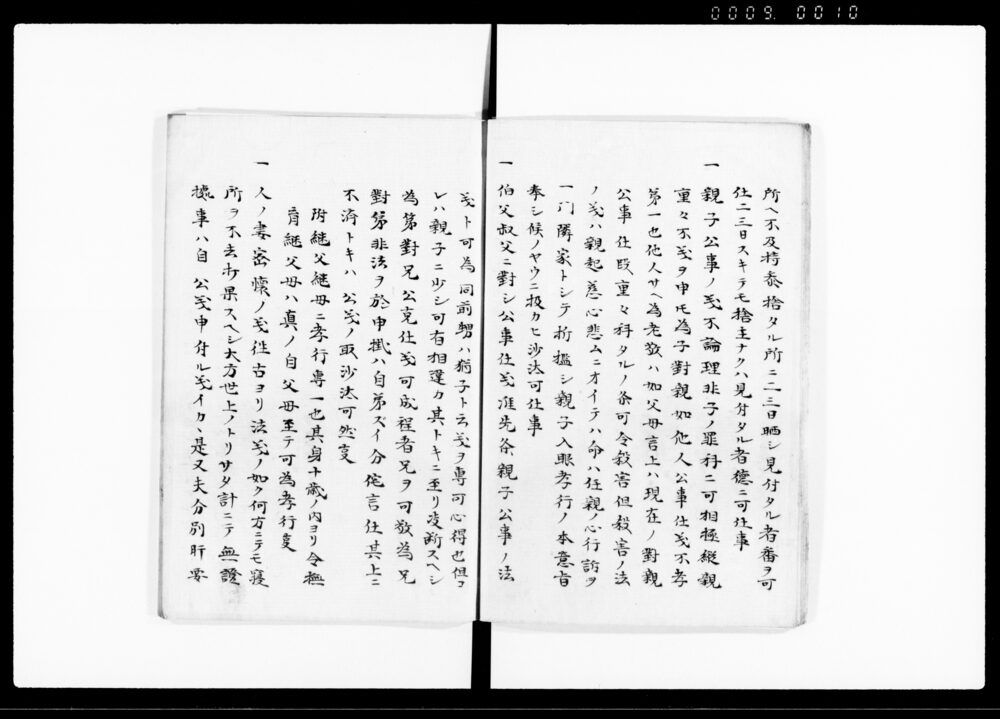 0009. 0010
所ヘ不及持参捨タル所ニ二三日晒シ見付タル者番ヲ可
仕二三日スキテモ捨主ナクハ見付タル者徳ニ可仕事
一 親子公事ノ義不論理非子ノ罪科ニ可相極縦親
重々不義ヲ申共為子對親如他人公事仕義不孝
第一也他人サヘ為老敬ハ如父母言上ハ現在ノ對親
公事仕段重々科タルノ条可令殺害但殺害ノ法
ノ義ハ親起慈心悲ムニオイテハ命ハ任親ノ心行訪ヲ
一門隣家トシテ折檻シ親子入眼孝行ノ本意旨
奉シ候ノヤウニ扱カヒ沙汰可仕事
一 伯父叔父ニ對シ公事仕義准先条親子公事ノ法
義ト可為同前甥ハ猶子ト云義ヲ専可心得也但コ
レハ親子ニ少シ可有相違カ其トキニ至リ凌断スヘシ
為弟對兄公克仕義可成程者兄ヲ可敬為兄
對弟非法ヲ於申掛ハ自弟ズイ分侘言仕其上ニ
不済トキハ公義ノ取沙汰可然事
附継父継母ニ孝行専一也其身十歳ノ内ヨリ令撫
育継父母ハ真ノ自父母至テ可為孝行事
一 人ノ妻密懐ノ義往古ヨリ法義ノ如ク何方ニテモ寝
所ヲ不去打果スヘシ大方世上ノトリサタ計ニテ無證
拠事ハ自公義申付ル義イカヽ是又夫分別肝要